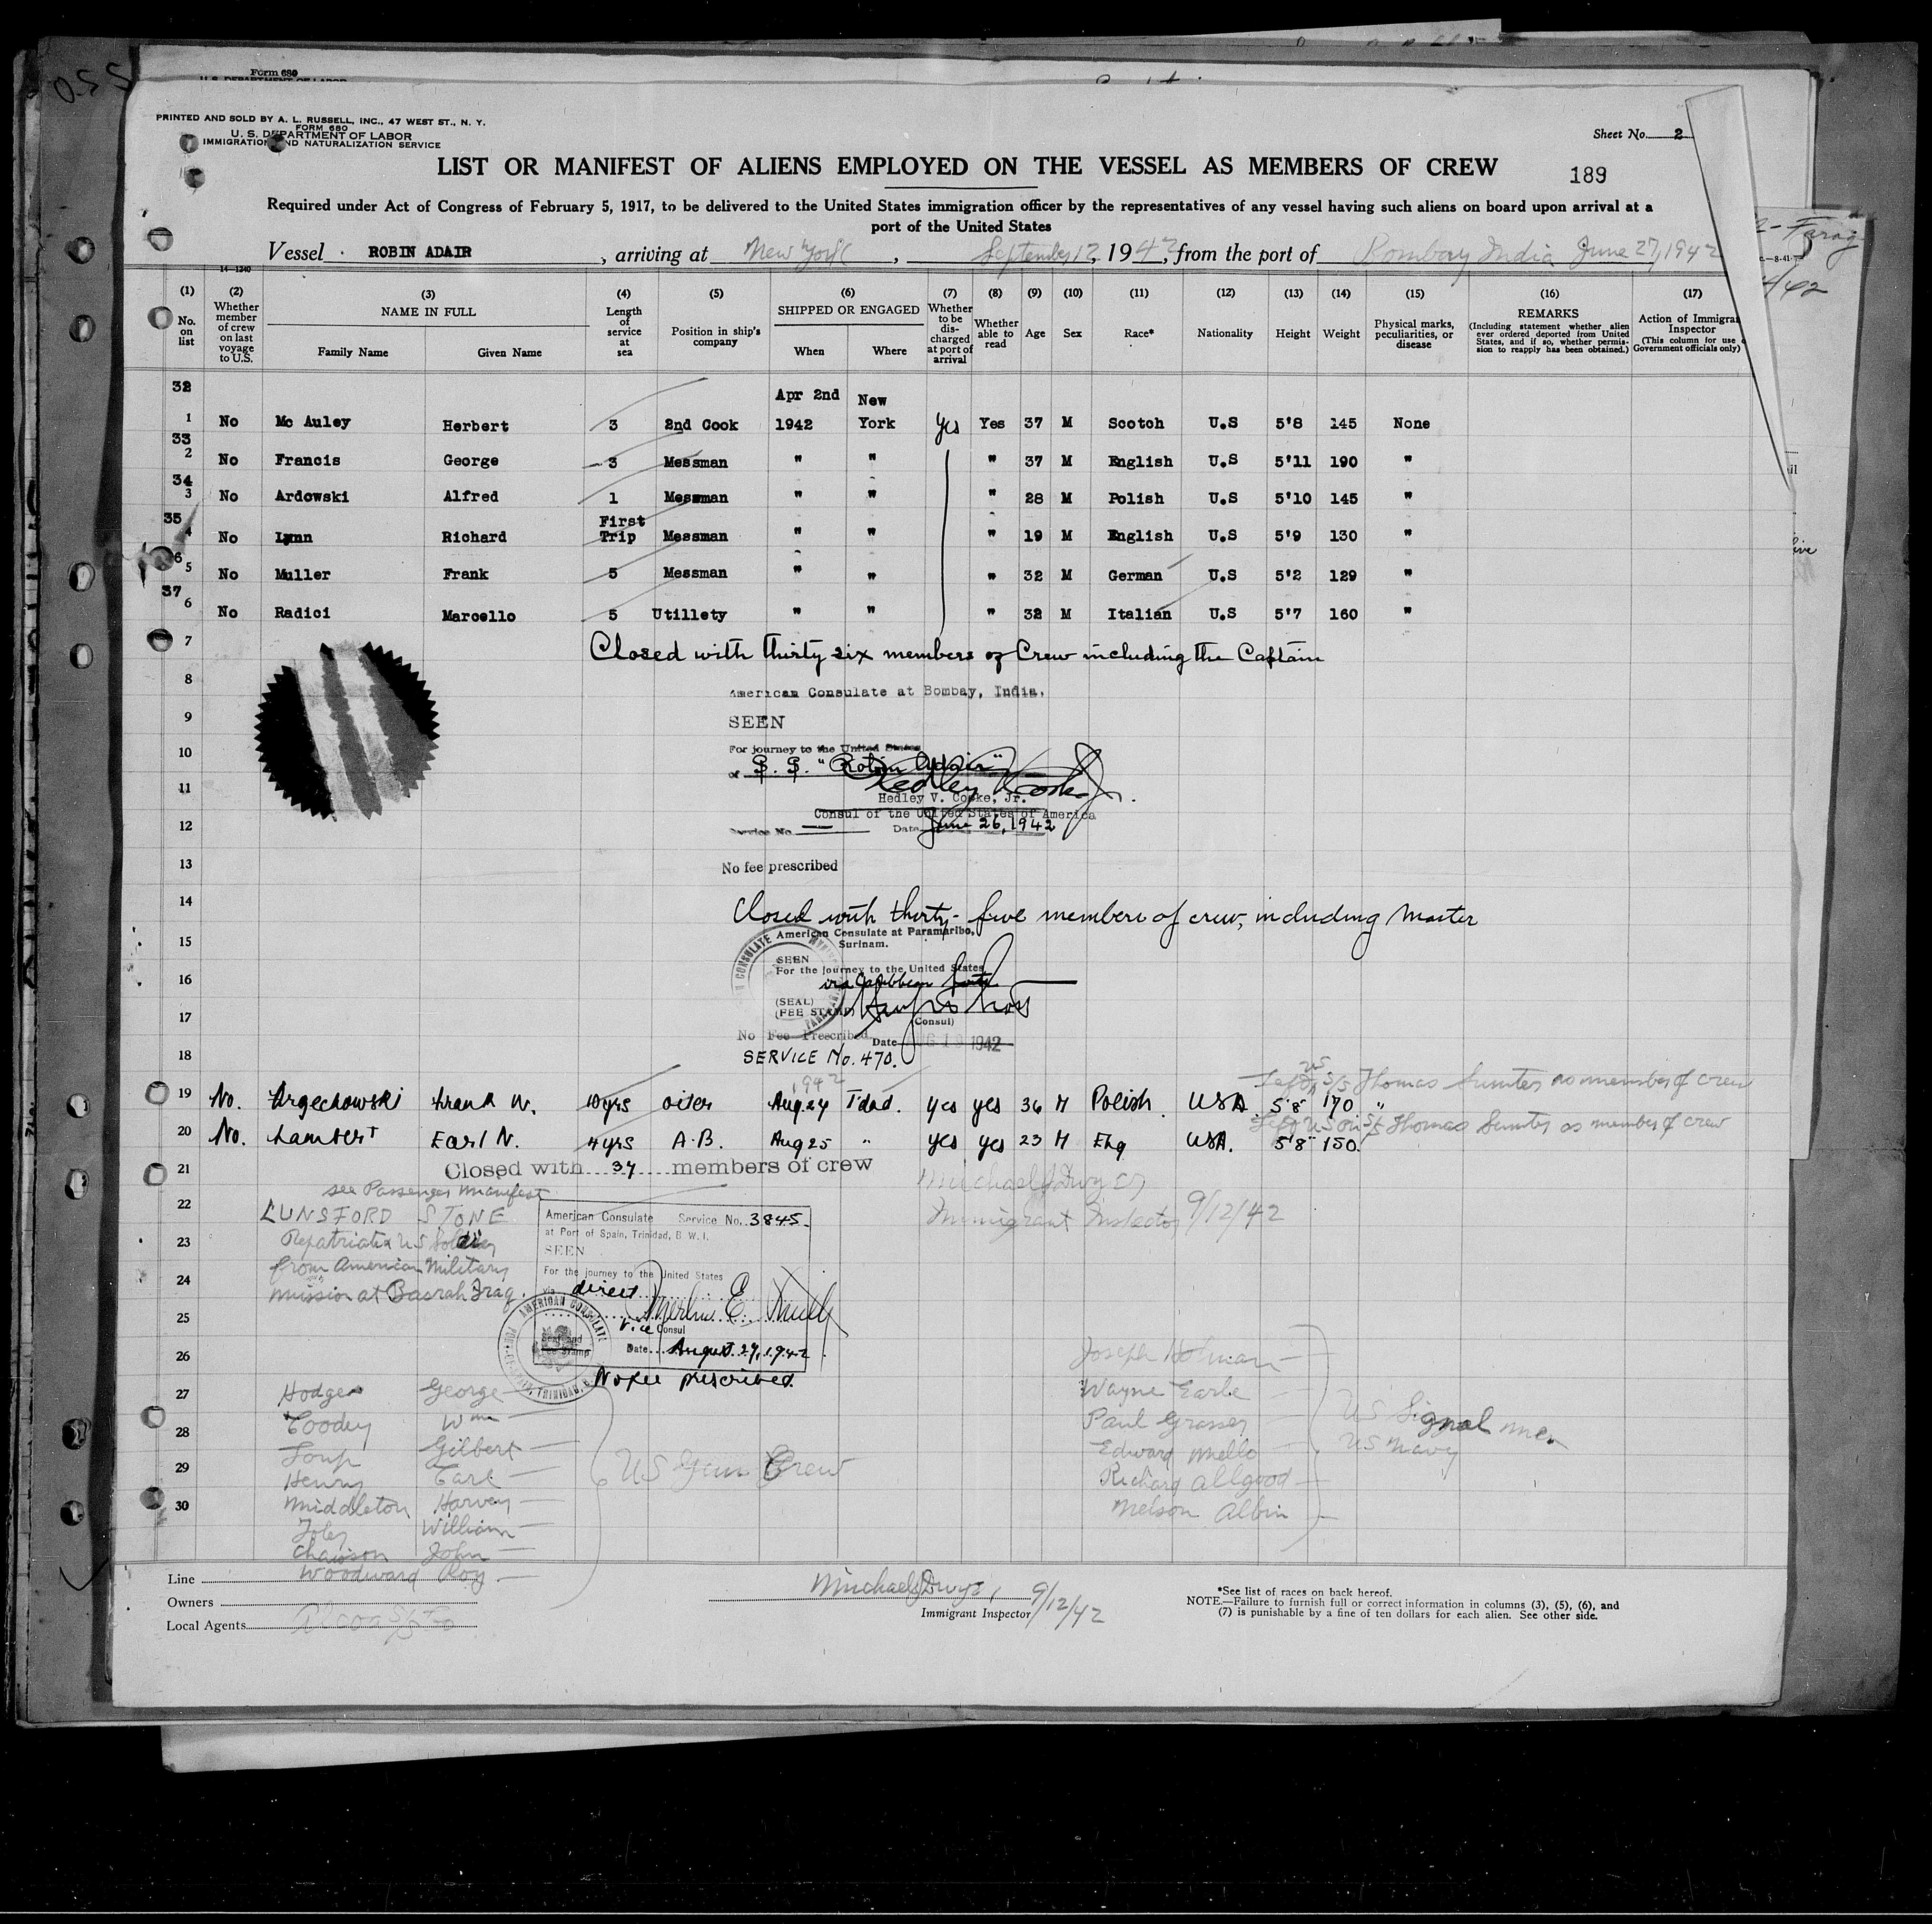 Form 680
PRINTED AND SOLD BY A. L. RUSSELL, INC., 47 WEST ST., N. Y.
FORM 680
U. S. DEPARTMENT OF LABOR
IMMIGRATION AND NATURALIZATION SERVICE
Sheet No. 2
LIST OR MANIFEST OF ALIENS EMPLOYED ON THE VESSEL AS MEMBERS OF CREW
189
Required under Act of Congress of February 5, 1917, to be delivered to the United States immigration officer by the representatives of any vessel having such aliens on board upon arrival at a
port of the United States
Vessel ROBIN ADAIR, arriving at New York, September 12, 1942, from the port of Bombay India June 27, 1942
14-1240
(1) No. on list
(2) Whether member of crew on last voyage to U.S.
(3) NAME IN FULL Family Name Given Name
(4) Length of service at sea
(5) Position in ship's company
(6) SHIPPED OR ENGAGED When Where
(7) Whether to be discharged at port of arrival
(8) Whether able to read
(9) Age
(10) Sex
(11) Race*
(12) Nationality
(13) Height
(14) Weight
(15) Physical marks, peculiarities, or disease
(16) REMARKS (Including statement whether alien ever ordered deported from United States, and if so, whether permission to reapply has been obtained.)
(17) Action of Immigrant Inspector (This column for use of Government officials only)
32 Apr 2nd New
1 No Mc Auley Herbert 3 2nd Cook 1942 York Yes Yes 37 M Scotch U.S 5'8 145 None
33
2 No Francis George 3 Messman " " " 37 M English U.S 5'11 190 "
34
3 No Ardowski Alfred 1 Messman " " " 28 M Polish U.S 5'10 145 "
35 First
4 No Lynn Richard Trip Messman " " " 19 M English U.S 5'9 130 "
36
5 No Muller Frank 5 Messman " " " 32 M German U.S 5'2 129 "
37
6 No Radici Marcello 5 Utillety " " " 32 M Italian U.S 5'7 160 "
7 Closed with thirty six members of Crew including the Captain
8 American Consulate at Bombay, India.
9 SEEN
10 For journey to the United States
of S. S. "Robin Adair"
11 Hedley V. Cooke, Jr.
Consul of the United States of America
12 Service No. — Date June 26, 1942
13 No fee prescribed
14 Closed with thirty-five members of crew, including Master
15 American Consulate at Paramaribo,
Surinam.
SEEN
For the journey to the United States
16 via Caribbean Ports
(SEAL)
(FEE STAMP)
17 (Consul)
No Fee Prescribed Date 1942
18 SERVICE No. 470.
1942 Left US S/S Thomas Sumter as member of crew
19 No. Argechowski Frank W. 10 yrs oiler Aug. 24 T'dad. yes yes 36 M Polish USA 5'8" 170 "
Left US on S/S Thomas Sumter as member of crew
20 No. Lambert Earl N. 4 yrs A.B. Aug 25 " yes yes 23 M Eng USA. 5'8" 150
21 Closed with 37 members of crew
Michael J Dwyer
Immigrant Inspector 9/12/42
see Passenger Manifest
22 LUNSFORD STONE
23 Repatriated US Soldier
from American Military
24 mission at Basrah Iraq.
American Consulate Service No. 3845
at Port of Spain, Trinidad, B. W. I.
SEEN
For the journey to the United States
via direct
25 Vice Consul
26 Date August 27, 1942
No fee prescribed
AMERICAN CONSULATE
27 Hodges George
28 Coody Wm
Gilbert
29 Henry Carl
30 Middleton Harvey
Foley William
Chaisson John
Woodward Roy
US Gun Crew
Joseph Holman
Wayne Earle
Paul Grasser
Edward Mello
Richard Allgood
Nelson Albin
US Signal men
US Navy
Line
Owners
Local Agents Alcoa S/S Co
Michael J Dwyer, 9/12/42
Immigrant Inspector
*See list of races on back hereof.
NOTE.—Failure to furnish full or correct information in columns (3), (5), (6), and
(7) is punishable by a fine of ten dollars for each alien. See other side.